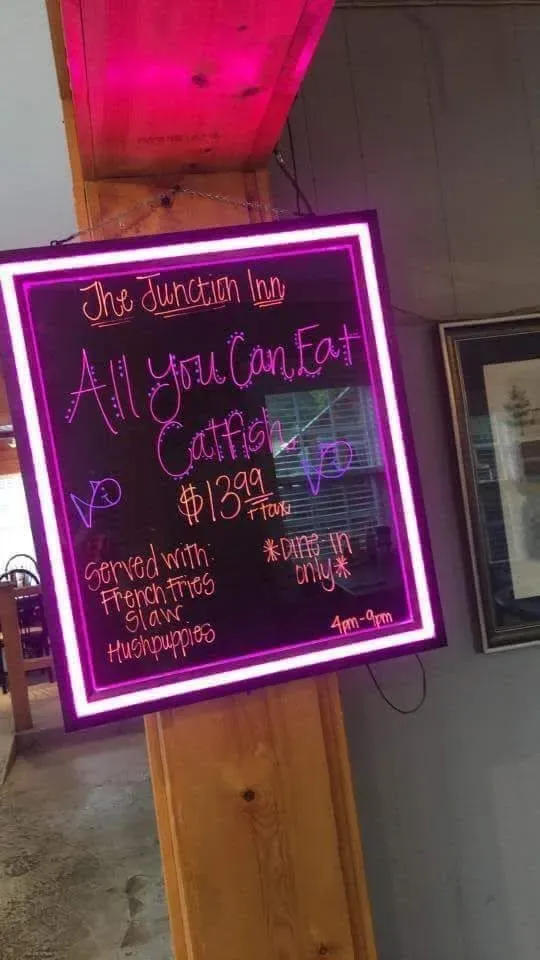 The Junction Inn
All You Can Eat
Catfish
$13.99
+tax
Served with:
French Fries
Slaw
Hushpuppies
*Dine in
only*
4pm-9pm